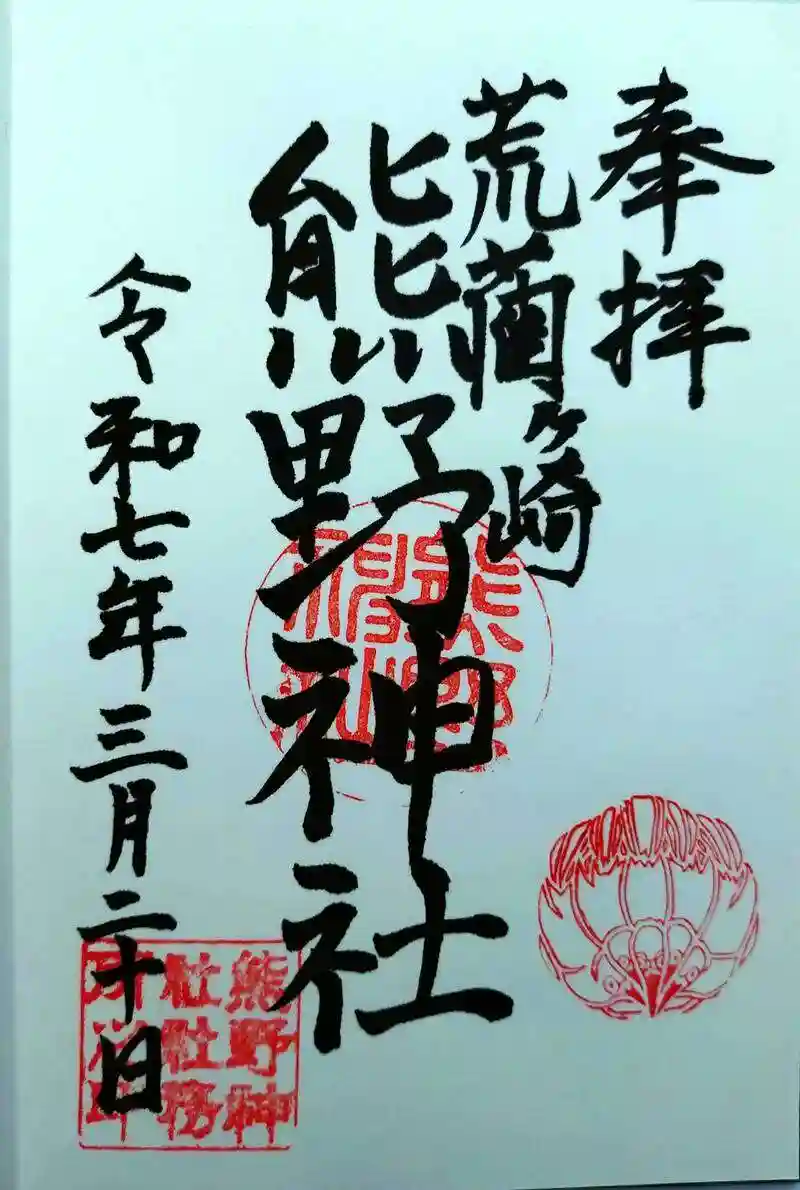 奉拝
荒藺ヶ崎
熊野神社
令和七年三月二十日
熊野
神社
熊野神
社社務
所
印